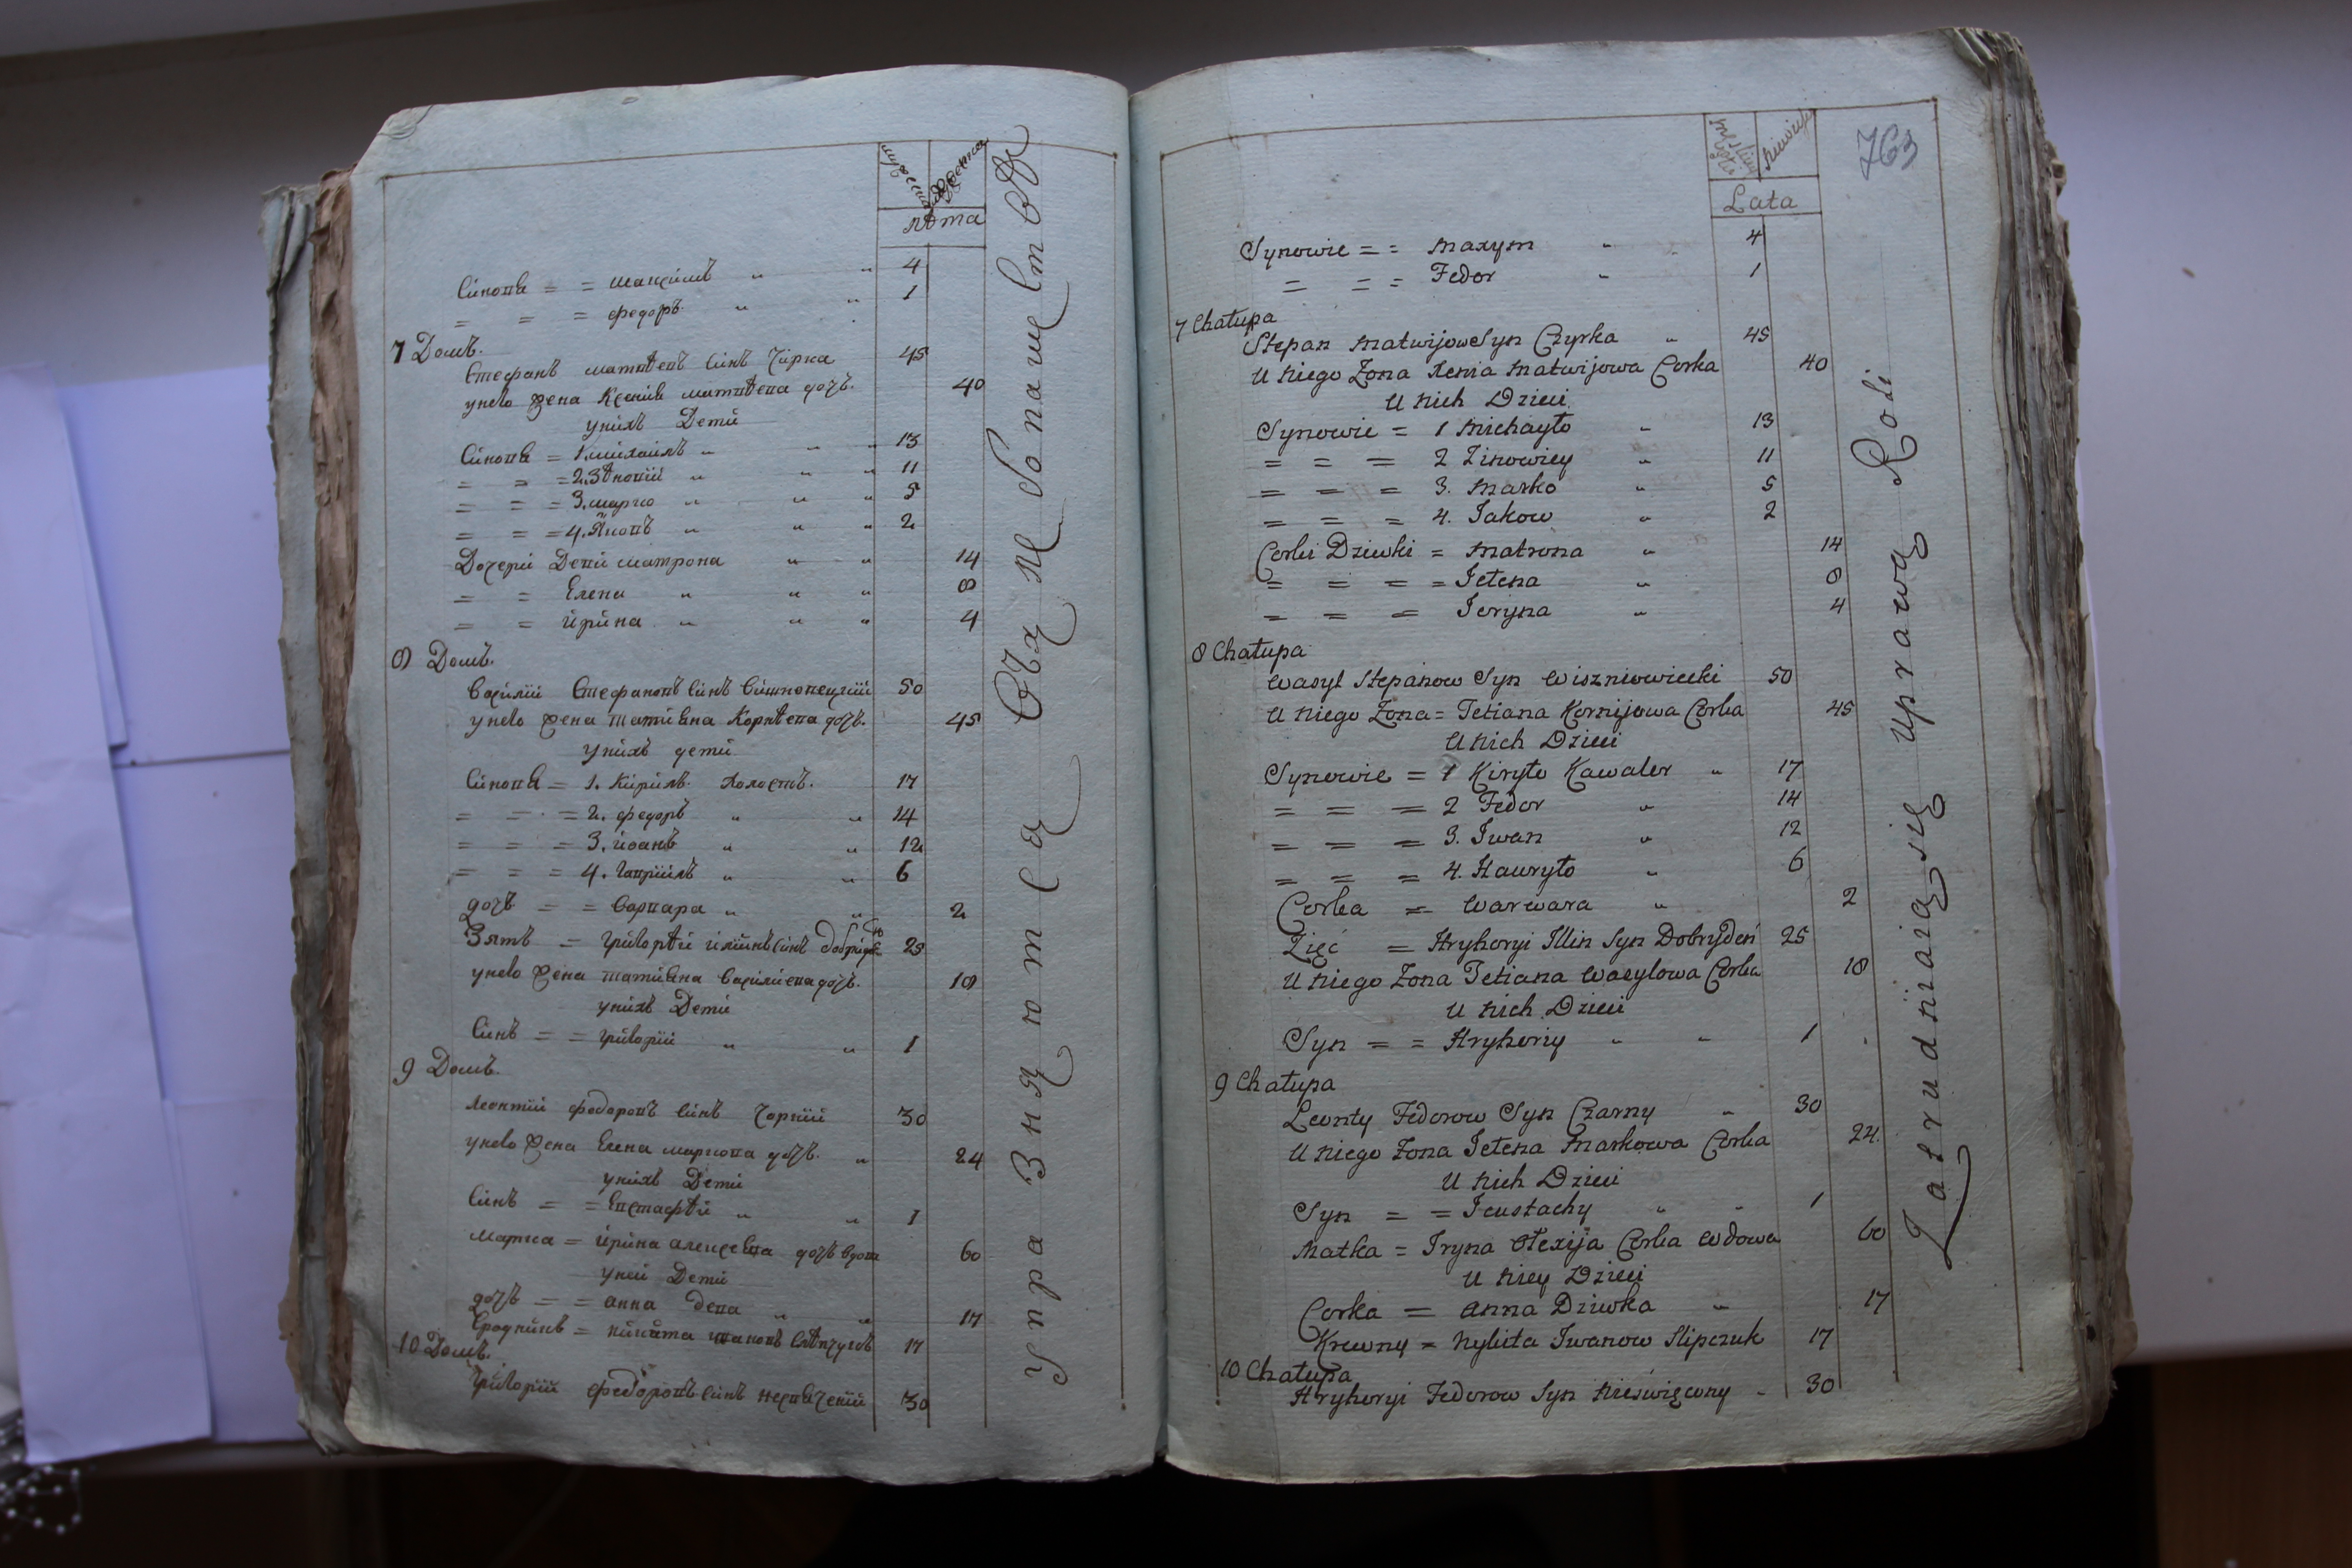 мужеска
женска
лѣта
Сінови = = Максімъ " " 4
= = = Федоръ " " 1
7 Домъ.
Стефанъ Матвѣевъ Синъ Чирка 45
унего Жена Ксенія Матвѣева дочь. 40
унихъ Дети
Сінови = 1. Михаилъ " " " 13
= = = 2. Зѣновій " " " 11
= = = 3. Марко " " " 5
= = = 4. Яковъ " " " 2
Дочери Деви Матрона " " 14
= = Елена " " " 8
= = Ирина " " " 4
8 Домъ.
Василій Стефановъ Синъ Вишневецкій 50
унего Жена Татіяна Корнѣева дочь. 45
унихъ дети
Сінови = 1. Кирилъ Холостъ. 17
= = = 2. Федоръ " " 14
= = = 3. Иоанъ " " 12
= = = 4. Гавріилъ " " 6
дочь = = Варвара " " 2
Зять = Григорѣй Иліинъ Синъ Добридень 25
унего Жена Татіяна Василиева дочь. 18
унихъ Дети
Синъ = = Григорій " " 1
9 Домъ.
Леонтій Федоровъ Синъ Чорній 30
унего Жена Елена Маркова дочь. " 24
унихъ Дети
Синъ = = Евстафѣй " " 1
Матка = Ирина Алексѣева дочь вдова 60
уней Дети
дочь = = Анна Дева " " 17
Сродникъ = Никита Ивановъ Слѣпчукъ 17
10 Домъ.
Григорій Федоровъ Синъ Несвяченій 30
Упра Зняются Около Хлебопашества
763
Lata
Synowie = = Maxym " 4
= = = Fedor " 1
7 Chałupa
Stepan Matwijow Syn Czyrka " 45
U Niego Żona Xenia Matwijowa Corka 40
U Nich Dzieci
Synowie = 1 Michayło " 13
= = = 2 Zinowiey " 11
= = = 3. Marko " 5
= = = 4. Jakow " 2
Corki Dziwki = Matrona " 14
= = = = Jełena " 8
= = = Jeryna " 4
8 Chałupa
Wasyl Stepanow Syn Wiszniowiecki 50
U Niego Żona = Tetiana Kornijowa Corka 45
U Nich Dzieci
Synowie = 1 Kiryło Kawaler " 17
= = = 2 Fedor " 14
= = = 3. Iwan " 12
= = = 4. Hawryło " 6
Corka = Warwara " 2
Zięć = Hryhoryi Illin Syn Dobrydeń 25
U Niego Żona Tetiana Wasylowa Corka 18
U Nich Dzieci
Syn = = Hryhoriy " " 1
9 Chałupa
Leonty Fedorow Syn Czarny " 30
U Niego Żona Jełena Markowa Corka 24.
U Nich Dzieci
Syn = = Jeustachy " " 1
Matka = Iryna Ołexija Corka Wdowa 60
U Niey Dzieci
Corka = Anna Dziwka " 17
Krewny = Nykita Iwanow Slipczuk 17
10 Chałupa
Hryhoryi Fedorow Syn Nieswięcony - 30
Zatrudniaią się uprawą Roli